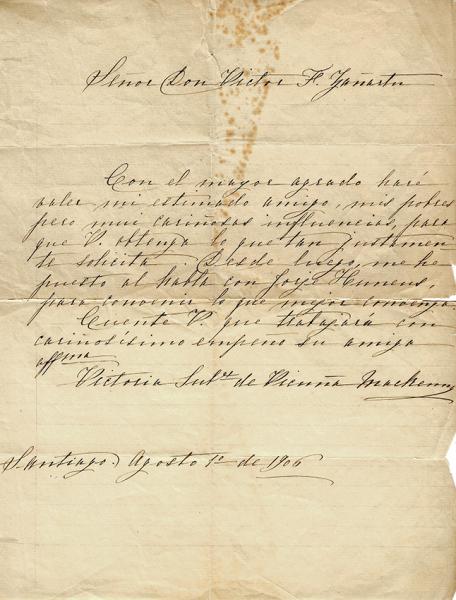 Señor Don Victor F. Zanartu
Con el mayor agrado haré
valer mi estimado amigo, mis pobres
pero mui cariñosas influencias, para
que V. obtenga lo que tan justamen
te solicita. Desde luego, me he
puesto al habla con Jorje Huneeus,
para convenir lo que mejor convenga.
Cuente V. que trabajará con
cariñosisimo empeño su amiga
affma
Victoria Subr. de Vicuña Mackenna
Santiago, Agosto 1º de 1906